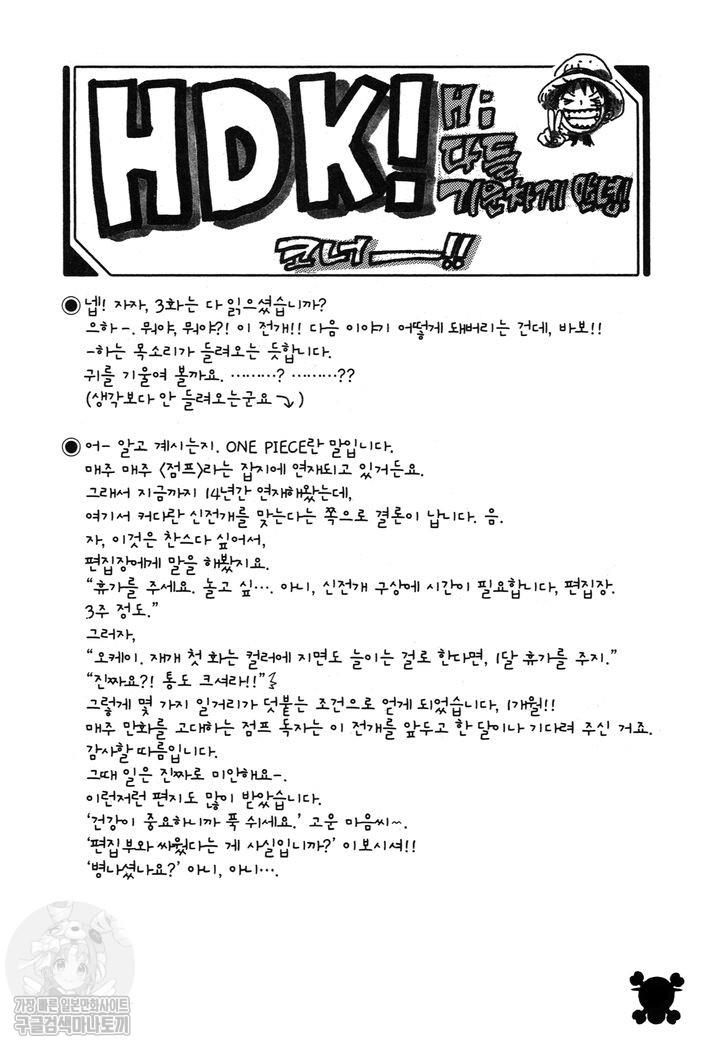 HDK!
Hi
다들
기운차게 안녕!
코너──!!
◉ 넵! 자자, 3화는 다 읽으셨습니까?
으하-. 뭐야, 뭐야?! 이 전개!! 다음 이야기 어떻게 돼버리는 건데, 바보!!
-하는 목소리가 들려오는 듯합니다.
귀를 기울여 볼까요. ………? ………??
(생각보다 안 들려오는군요 ⤵)
◉ 어- 알고 계시는지. ONE PIECE란 말입니다.
매주 매주 〈점프〉라는 잡지에 연재되고 있거든요.
그래서 지금까지 14년간 연재해왔는데,
여기서 커다란 신전개를 맞는다는 쪽으로 결론이 납니다. 음.
자, 이것은 찬스다 싶어서,
편집장에게 말을 해봤지요.
“휴가를 주세요. 놀고 싶…. 아니, 신전개 구상에 시간이 필요합니다, 편집장.
3주 정도.”
그러자,
“오케이. 재개 첫 화는 컬러에 지면도 늘이는 걸로 한다면, 1달 휴가를 주지.”
“진짜요?! 통도 크셔라!!”
그렇게 몇 가지 일거리가 덧붙는 조건으로 얻게 되었습니다, 1개월!!
매주 만화를 고대하는 점프 독자는 이 전개를 앞두고 한 달이나 기다려 주신 거죠.
감사할 따름입니다.
그때 일은 진짜로 미안해요-.
이런저런 편지도 많이 받았습니다.
‘건강이 중요하니까 푹 쉬세요.’ 고운 마음씨~.
‘편집부와 싸웠다는 게 사실입니까?’ 이보시셔!!
‘병나셨나요?’ 아니, 아니….
가장 빠른 일본만화사이트
구글검색마나토끼